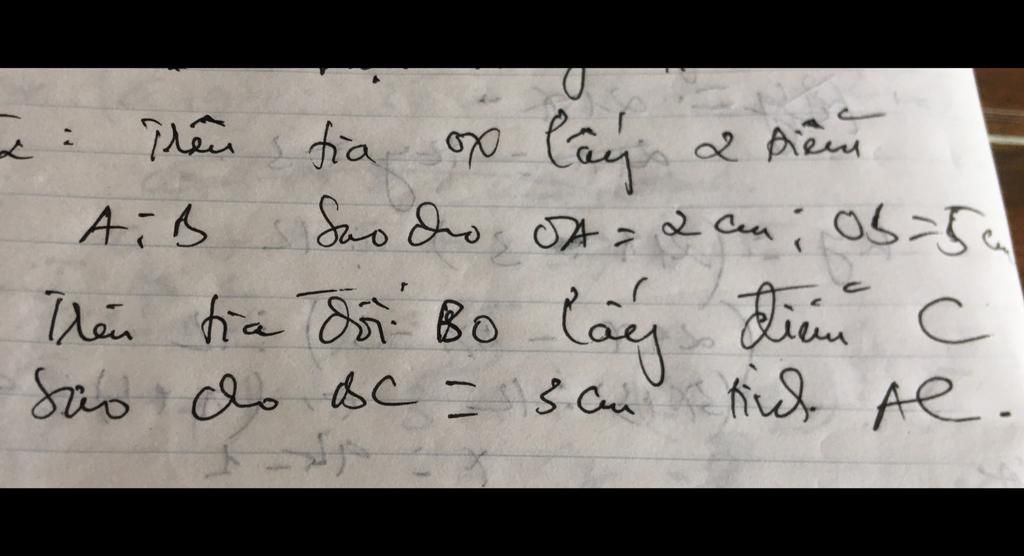 2: Trên tia Ox lấy 2 điểm
A; B Sao cho OA = 2 cm; OB = 5 cm
Trên tia đối BO lấy điểm C
Sao cho BC = 3 cm tính AC.